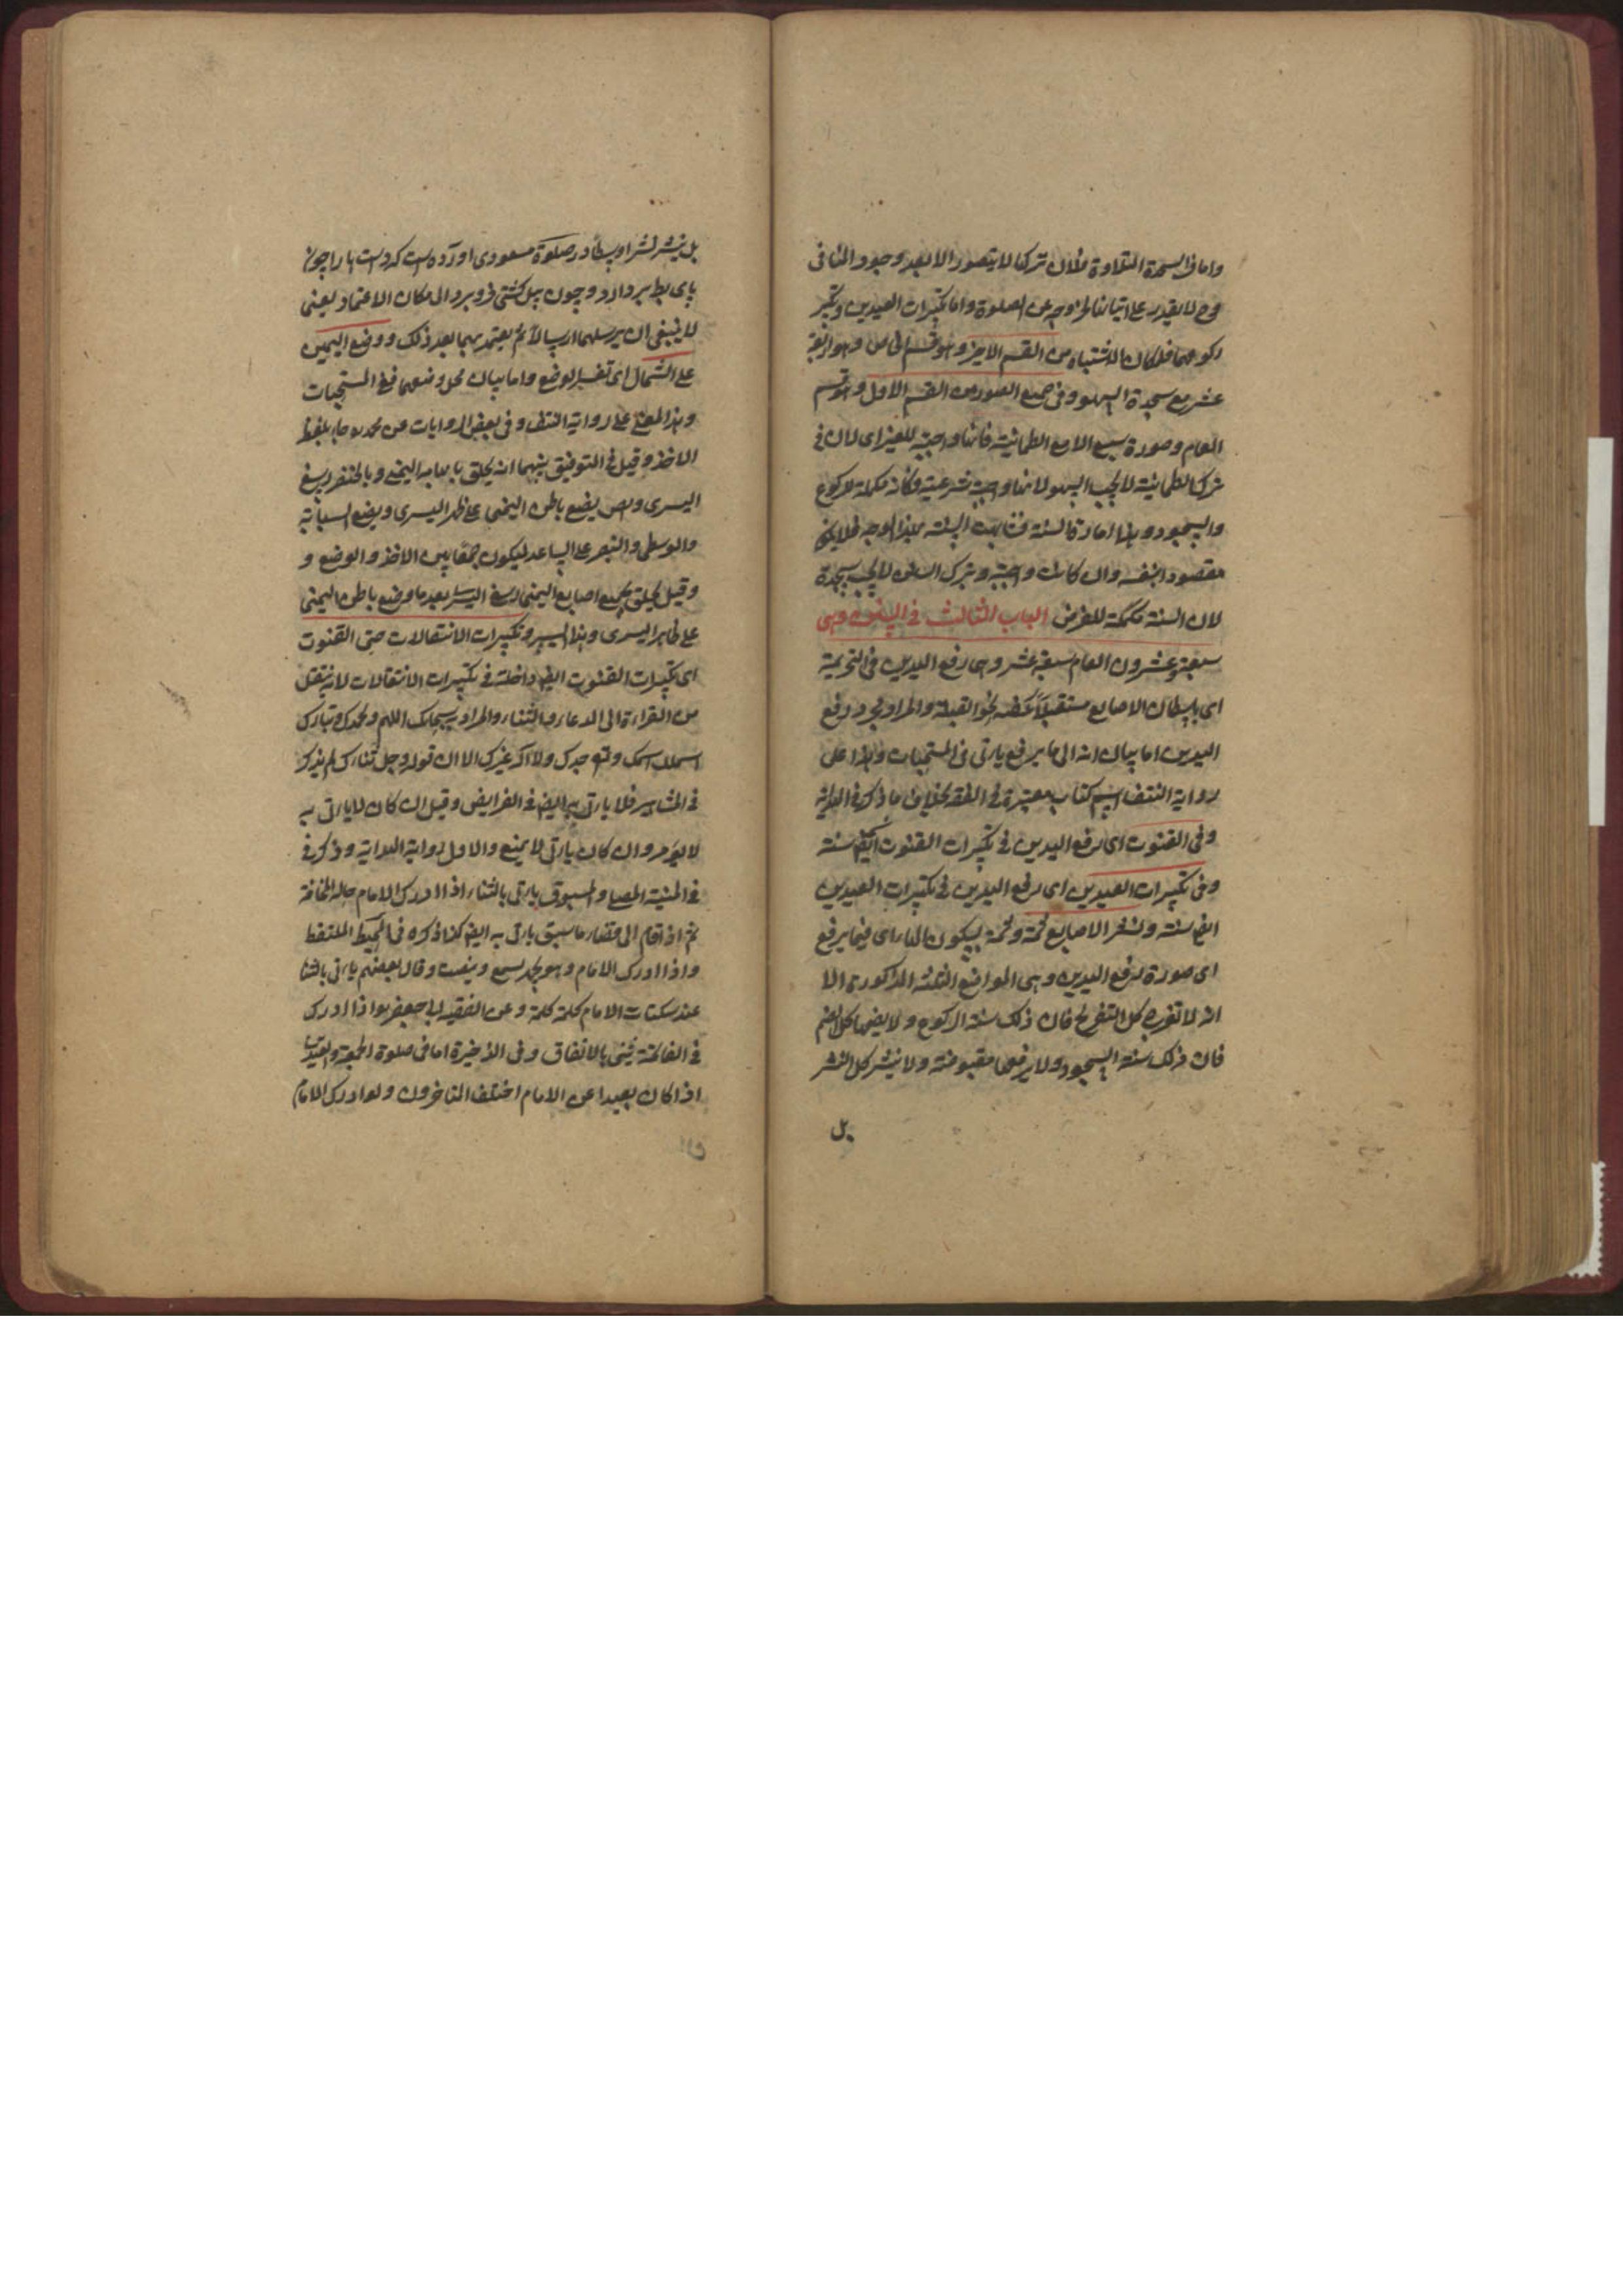 واما في السجدة التلاوة فلان تركها لا يتصور الا بعد وجود المنافى
وح لا يقدر على اتيانها لخروجه عن الصلوة واما تكبيرات العيدين وتكبير
ركوعهما فلمكان الاشتباه من القسم الاخير وهو قسم الخاص وهو اربعة
عشر مع سجدة السهو وفي جميع الصور من القسم الاول وهو قسم
العام وصورة سبع الاربع الطمانية فانها واجبة للغير اى لان في
ترك الطمانية لا يجب السهو لانها واجبة شرعية وكانه مكملة للركوع
والسجود وبها امارة السنة فشابهت السنة بهذا الوجه فلا يكون
مقصودا بنفسه وان كانت واجبة وبترك السنن لا يجب سجدة
لان السنة مكملة للفرض الباب الثالث في السنن وهي
سبعة وعشرون العام سبعة عشر وهي رفع اليدين في التحريمة
اى بابسطان الاصابع مستقبلا كفه نحو القبلة والمراد مجرد رفع
اليدين اما بيان انه الى ما يرفع ياتى في المستحبات وهذا على
رواية النتف اسم كتاب معتبرة في الفقه بخلاف ما ذكر في الهداية
وفي القنوت اى رفع اليدين في تكبيرات القنوت ايضا سنة
وفي تكبيرات العيدين اى رفع اليدين في تكبيرات العيدين
ايضا سنة ونشر الاصابع ثمة وثمة بسكون الهاء اى فيما يرفع
اى صورة رفع اليدين وهي المواضع الثلثة المذكورة الا
انه لا تفرج كل التفريج فان ذلك سنة الركوع ولا يضمها كل الضم
فان ذلك سنة السجود ولا يرفعها مقبوضة ولا ينشر كل النشر
بل
بل ينشر نشرا وسطا در صلوة مسعودى اورده است كه دست ها را چون
پاى بط بردارد وچون پيل كشتى فرو برد الى مكان الاعتماد يعنى
لا ينبغى ان يرسلهما ارسالا ثم يعتمد بهما بعد ذلك ووضع اليمين
على الشمال اى تفسير الوضع واما بيان محل وضعهما ففي المستحبات
وهذا المعنى على رواية النتف وفي بعض الروايات عن محمد رح جاء بلفظ
الاخذ وقيل في التوفيق بينهما انه يحلق بابهامه اليمنى وبالخنصر رسغ
اليسرى ويضع باطن اليمنى على ظهر اليسرى ويضع السبابة
والوسطى والبنصر على الساعد ليكون جمعا بين الاخذ والوضع و
وقيل يحلق بجميع اصابع اليمنى رسغ اليسرى بعد ما وضع باطن اليمنى
على ظاهر اليسرى وهذا ايسر وتكبيرات الانتقالات حتى القنوت
اى تكبيرات القنوت ايضا داخلة في تكبيرات الانتقالات لانه ينتقل
من القراءة الى الدعاء والثناء والمراد به سبحانك اللهم وبحمدك وتبارك
اسمك وتعالى جدك ولا اله غيرك الا ان قوله وجل ثناؤك لم يذكر
في المشاهير فلا ياتى به ايضا في الفرايض وقيل ان كان لا ياتى به
لا يؤمر وان كان ياتى لا يمنع والاول رواية الهداية وذكر في
في المنية المصلى والمسبوق ياتى بالثناء اذا ادرك الامام حالة المخافة
ثم اذا قام الى قضاء ما سبق ياتى به ايضا كذا ذكره في المحيط الملتقط
واذا ادرك الامام وهو يجهر يسمع وينصت وقال بعضهم ياتى بالثناء
عند سكتات الامام كلمة كلمة وعن الفقيه ابى جعفر هو اذا ادرك
في الفاتحة يثنى بالاتفاق وفي الاخيرة اما في صلوة الجمعة والعيدين
اذا كان بعيدا عن الامام اختلف المتاخرون ولو ادرك الامام